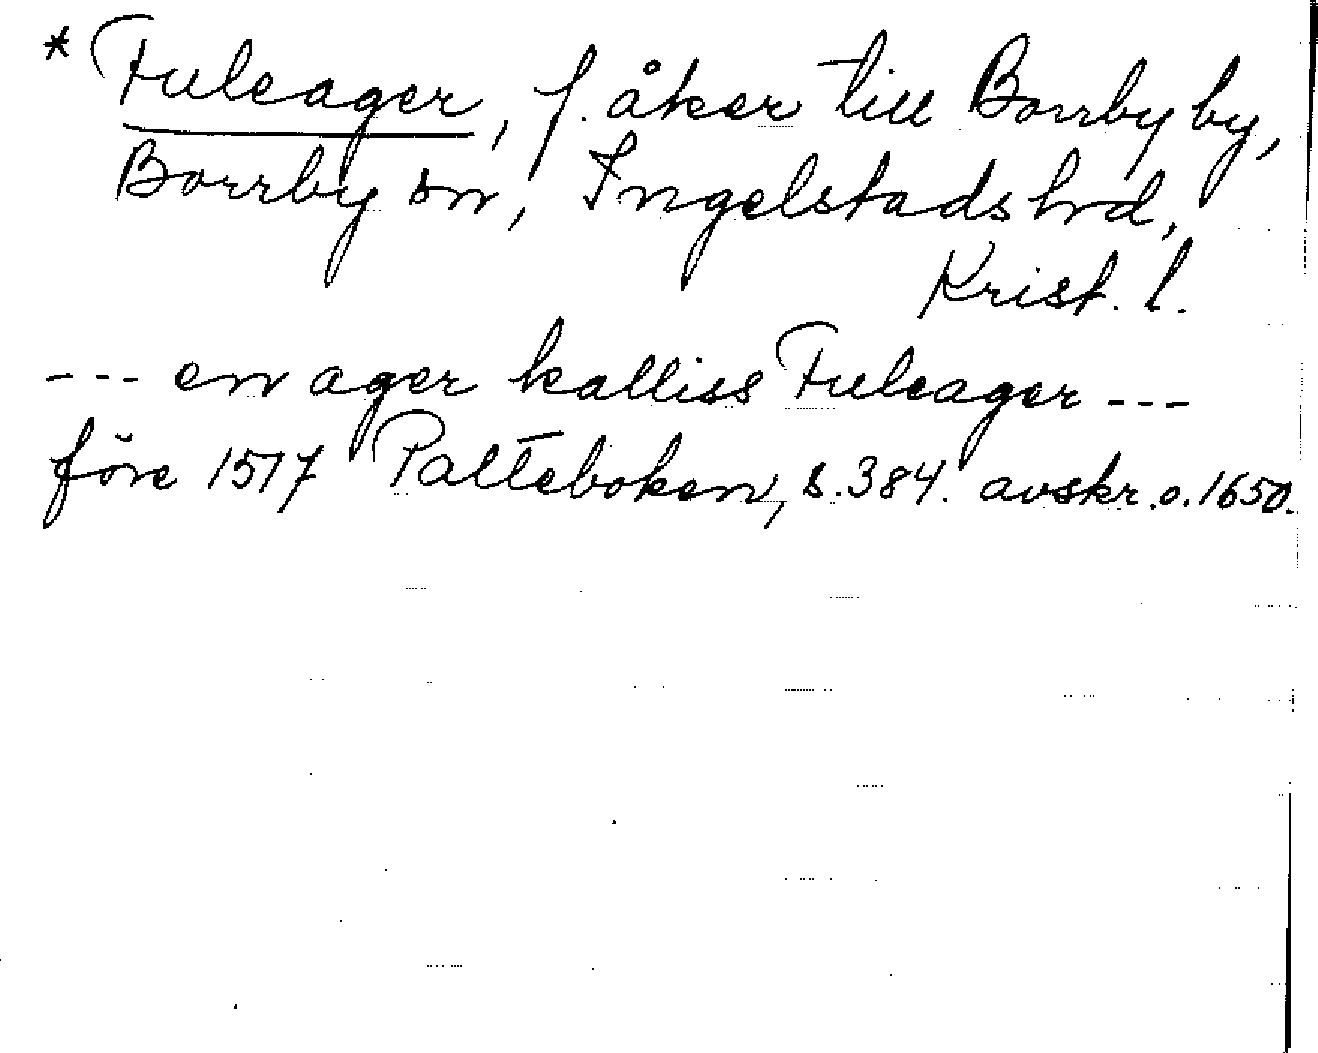 * Fuleager, f. åker till Borrby by,
Borrby sn, Ingelstads hrd,
Krist. l.
--- en ager kalliss Fuleager ---
före 1517 Palteboken, s. 384. avskr. o. 1650.